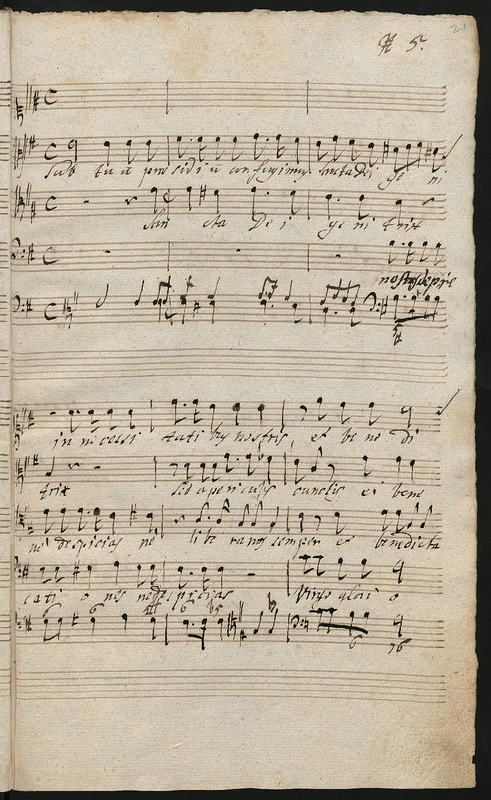 N 5.
21
Sub tu u pre sidi u confugimus Sancta Dei ge ni
San cta De i ge ni trix
nostras depre
in necessi tati bus nostris, et be ne di
trix sed a periculis cunctis et bene
ne despicias ne li be ra nos semper et benedicta
cati o nes ne despicias Virgo glori o
6 6 6 6
6 76